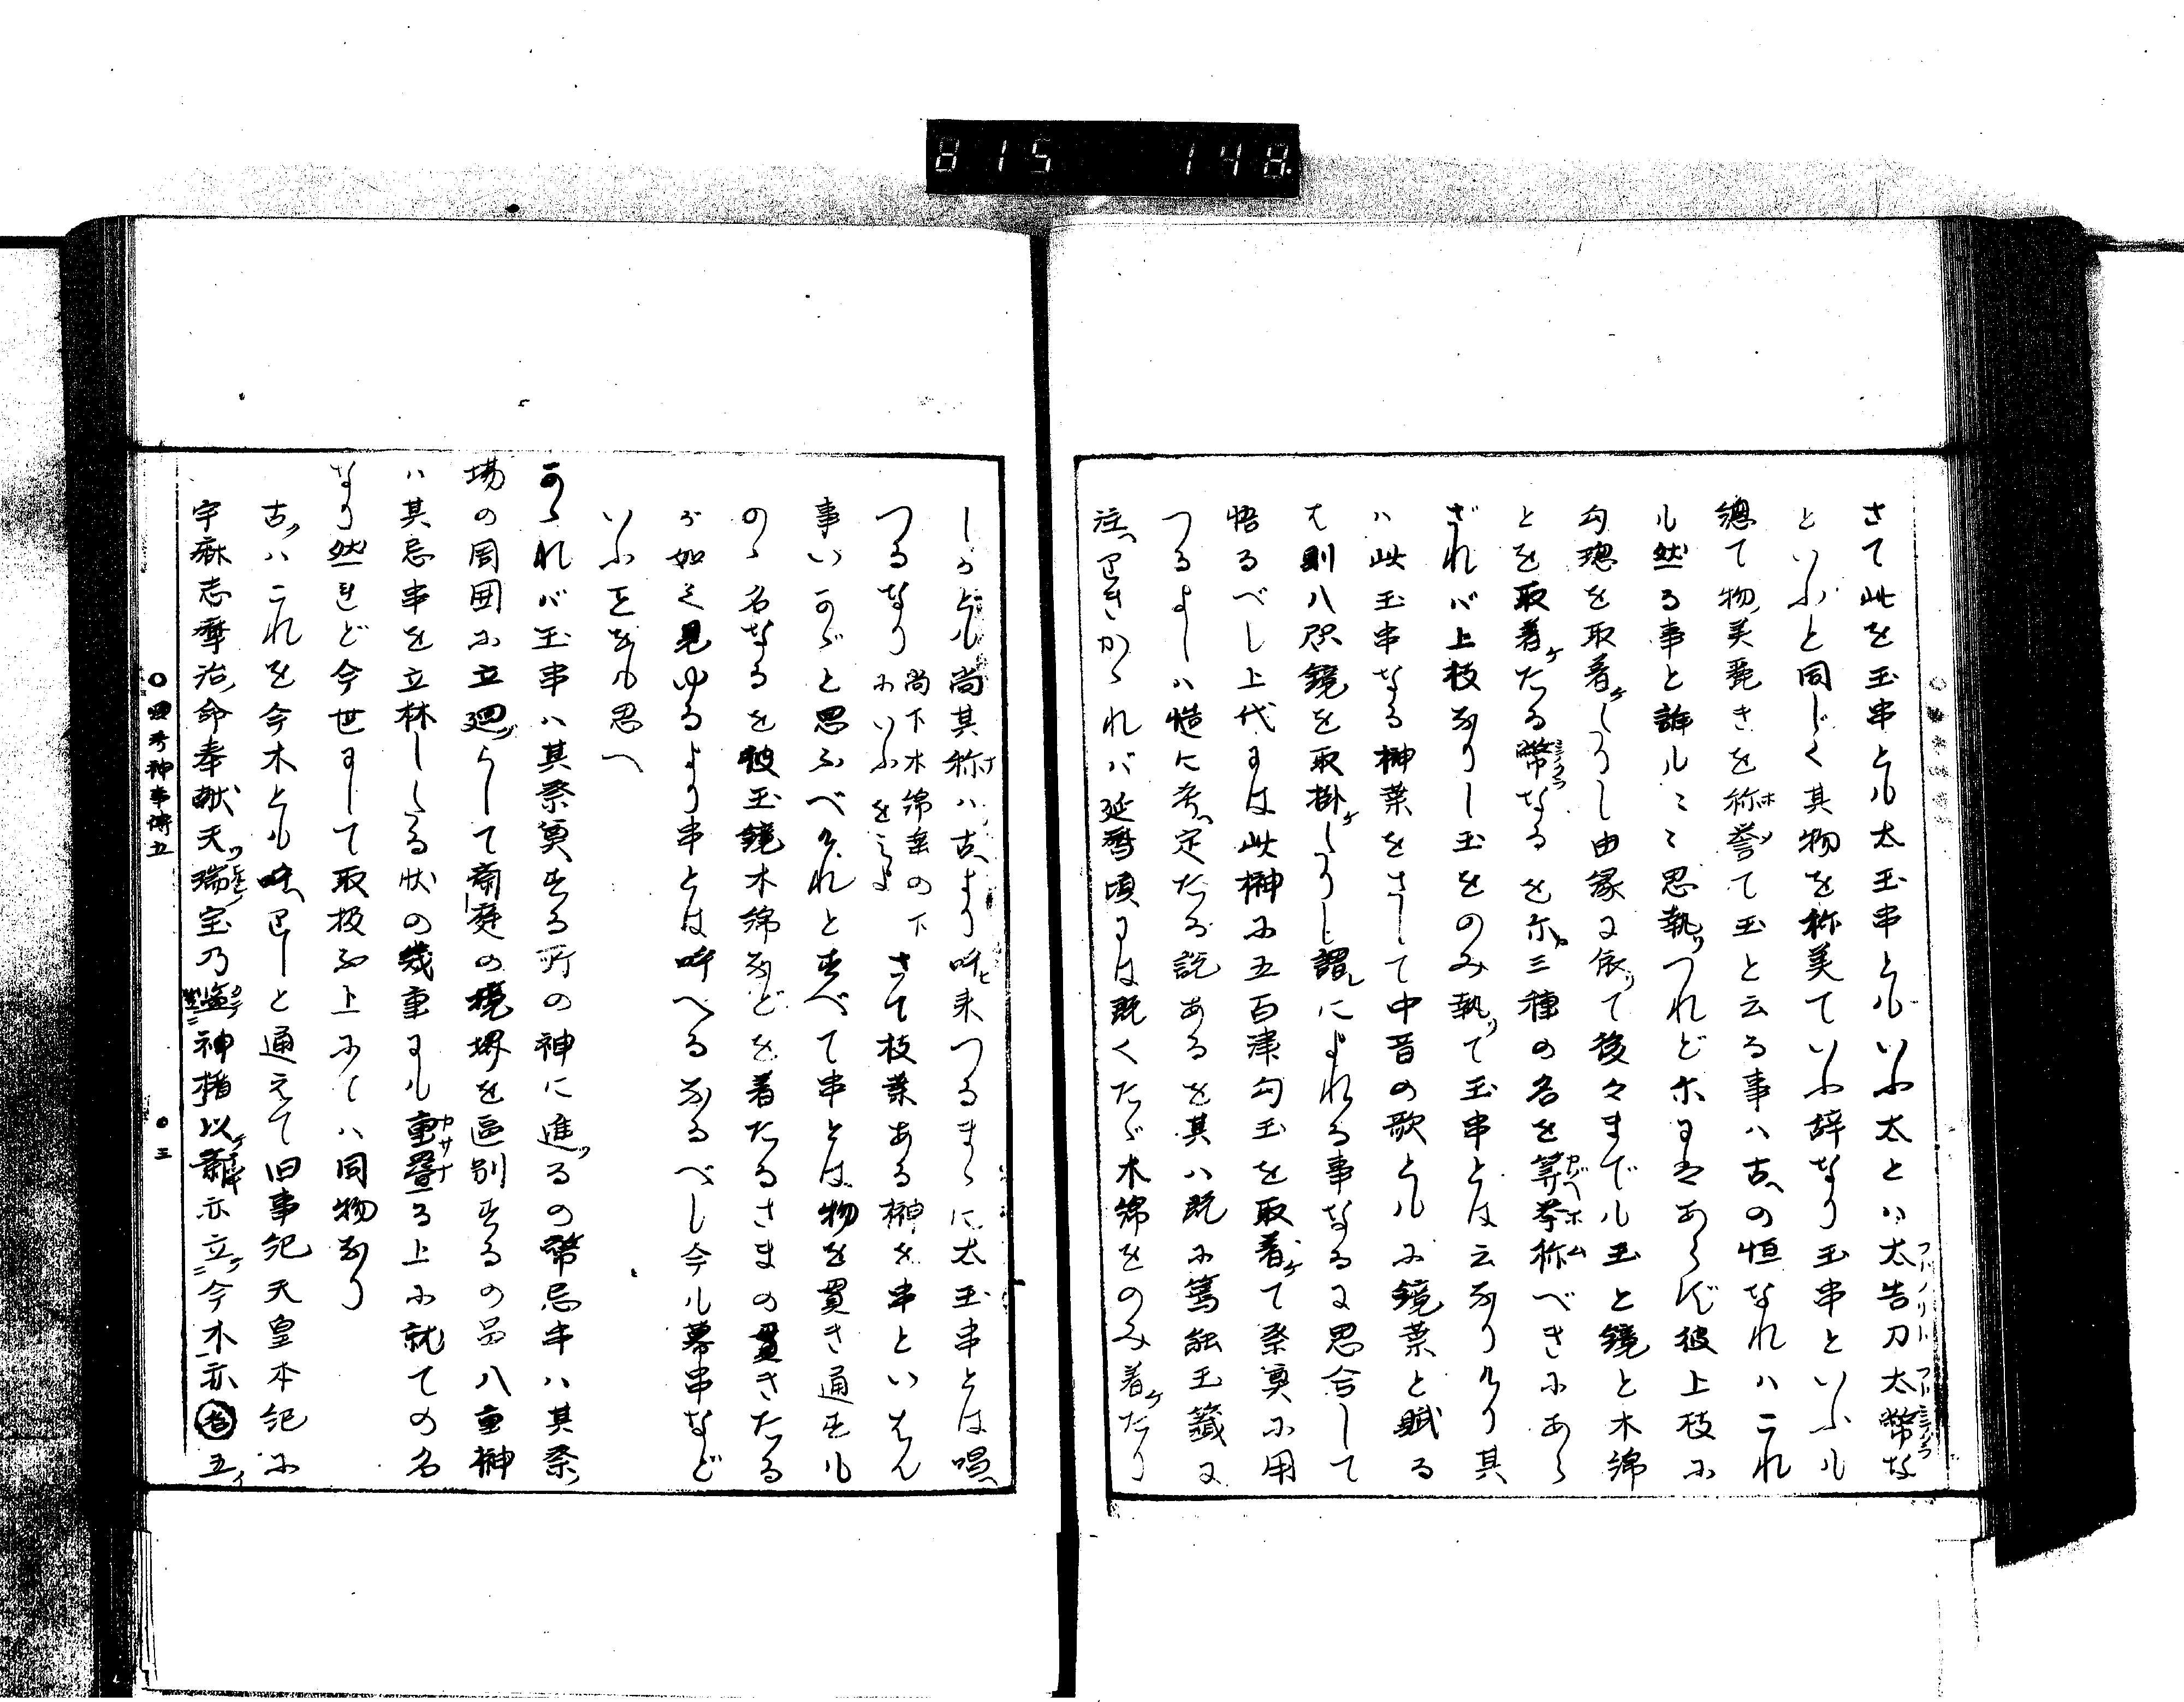 815 148.
さて此を玉串とも太玉串ともいふ太とハ太告刀太幣な
といふと同じく其物を称美ていふ辞なり玉串といふも
總て物美麗きを称誉て玉と云る事ハ古の恒なれハこれ
も然る事と誰も思執つれど あらず彼上枝に
勾璁を取着しし由縁に依て後々までも玉と鏡と木綿
とを取着たる幣なるを三種の名を等挙称べきにあら
ざれバ上枝なりし玉をのみ執て玉串とは云なりけり其
ハ此玉串なる榊葉をさして中昔の歌ともに鏡葉と賦る
は則八咫鏡を取掛しし謂によれる事なるに思合して
悟るべし上代には此榊に五百津勾玉を取着て祭奠に用
つるよしハ慥に考定たる説あるを其ハ既に篤能玉籤に
注 かゝれバ延暦頃には既くたゞ木綿をのみ着たり
しかども尚其称ハ古より呼来つるまゝに太玉串とは唱
つるなり 尚下木綿垂の下にいふをみよ さて枝葉ある榊を串といはん
事いかゞと思ふべけれと すべて串とは物を貫き通すも
のゝ名なるを彼玉鏡木綿などを着たるさまの貫きたる
が如く見ゆるより串とは呼へるなるべし今も幕串など
いふをも思へ
かゝれバ玉串ハ其祭奠する所の神に進るの幣忌串ハ其祭
場の周囲に立廻らして斎庭の境堺を區別するの品八重榊
ハ其忌串を立林しゝる状の幾重にも重畳る上に就ての名
なり然れど今世にして取扱ふ上にてハ同物なり
古ハこれを今木とも と通えて旧事紀天皇本紀に
宇麻志摩治命奉献天瑞宝乃 神楯以 亦立今木亦 五
神事 五
三